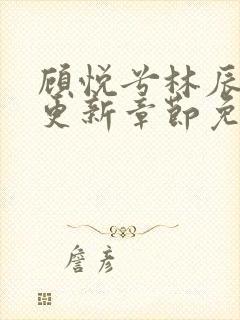 顾悦兮林辰
更新章节免
詹彦